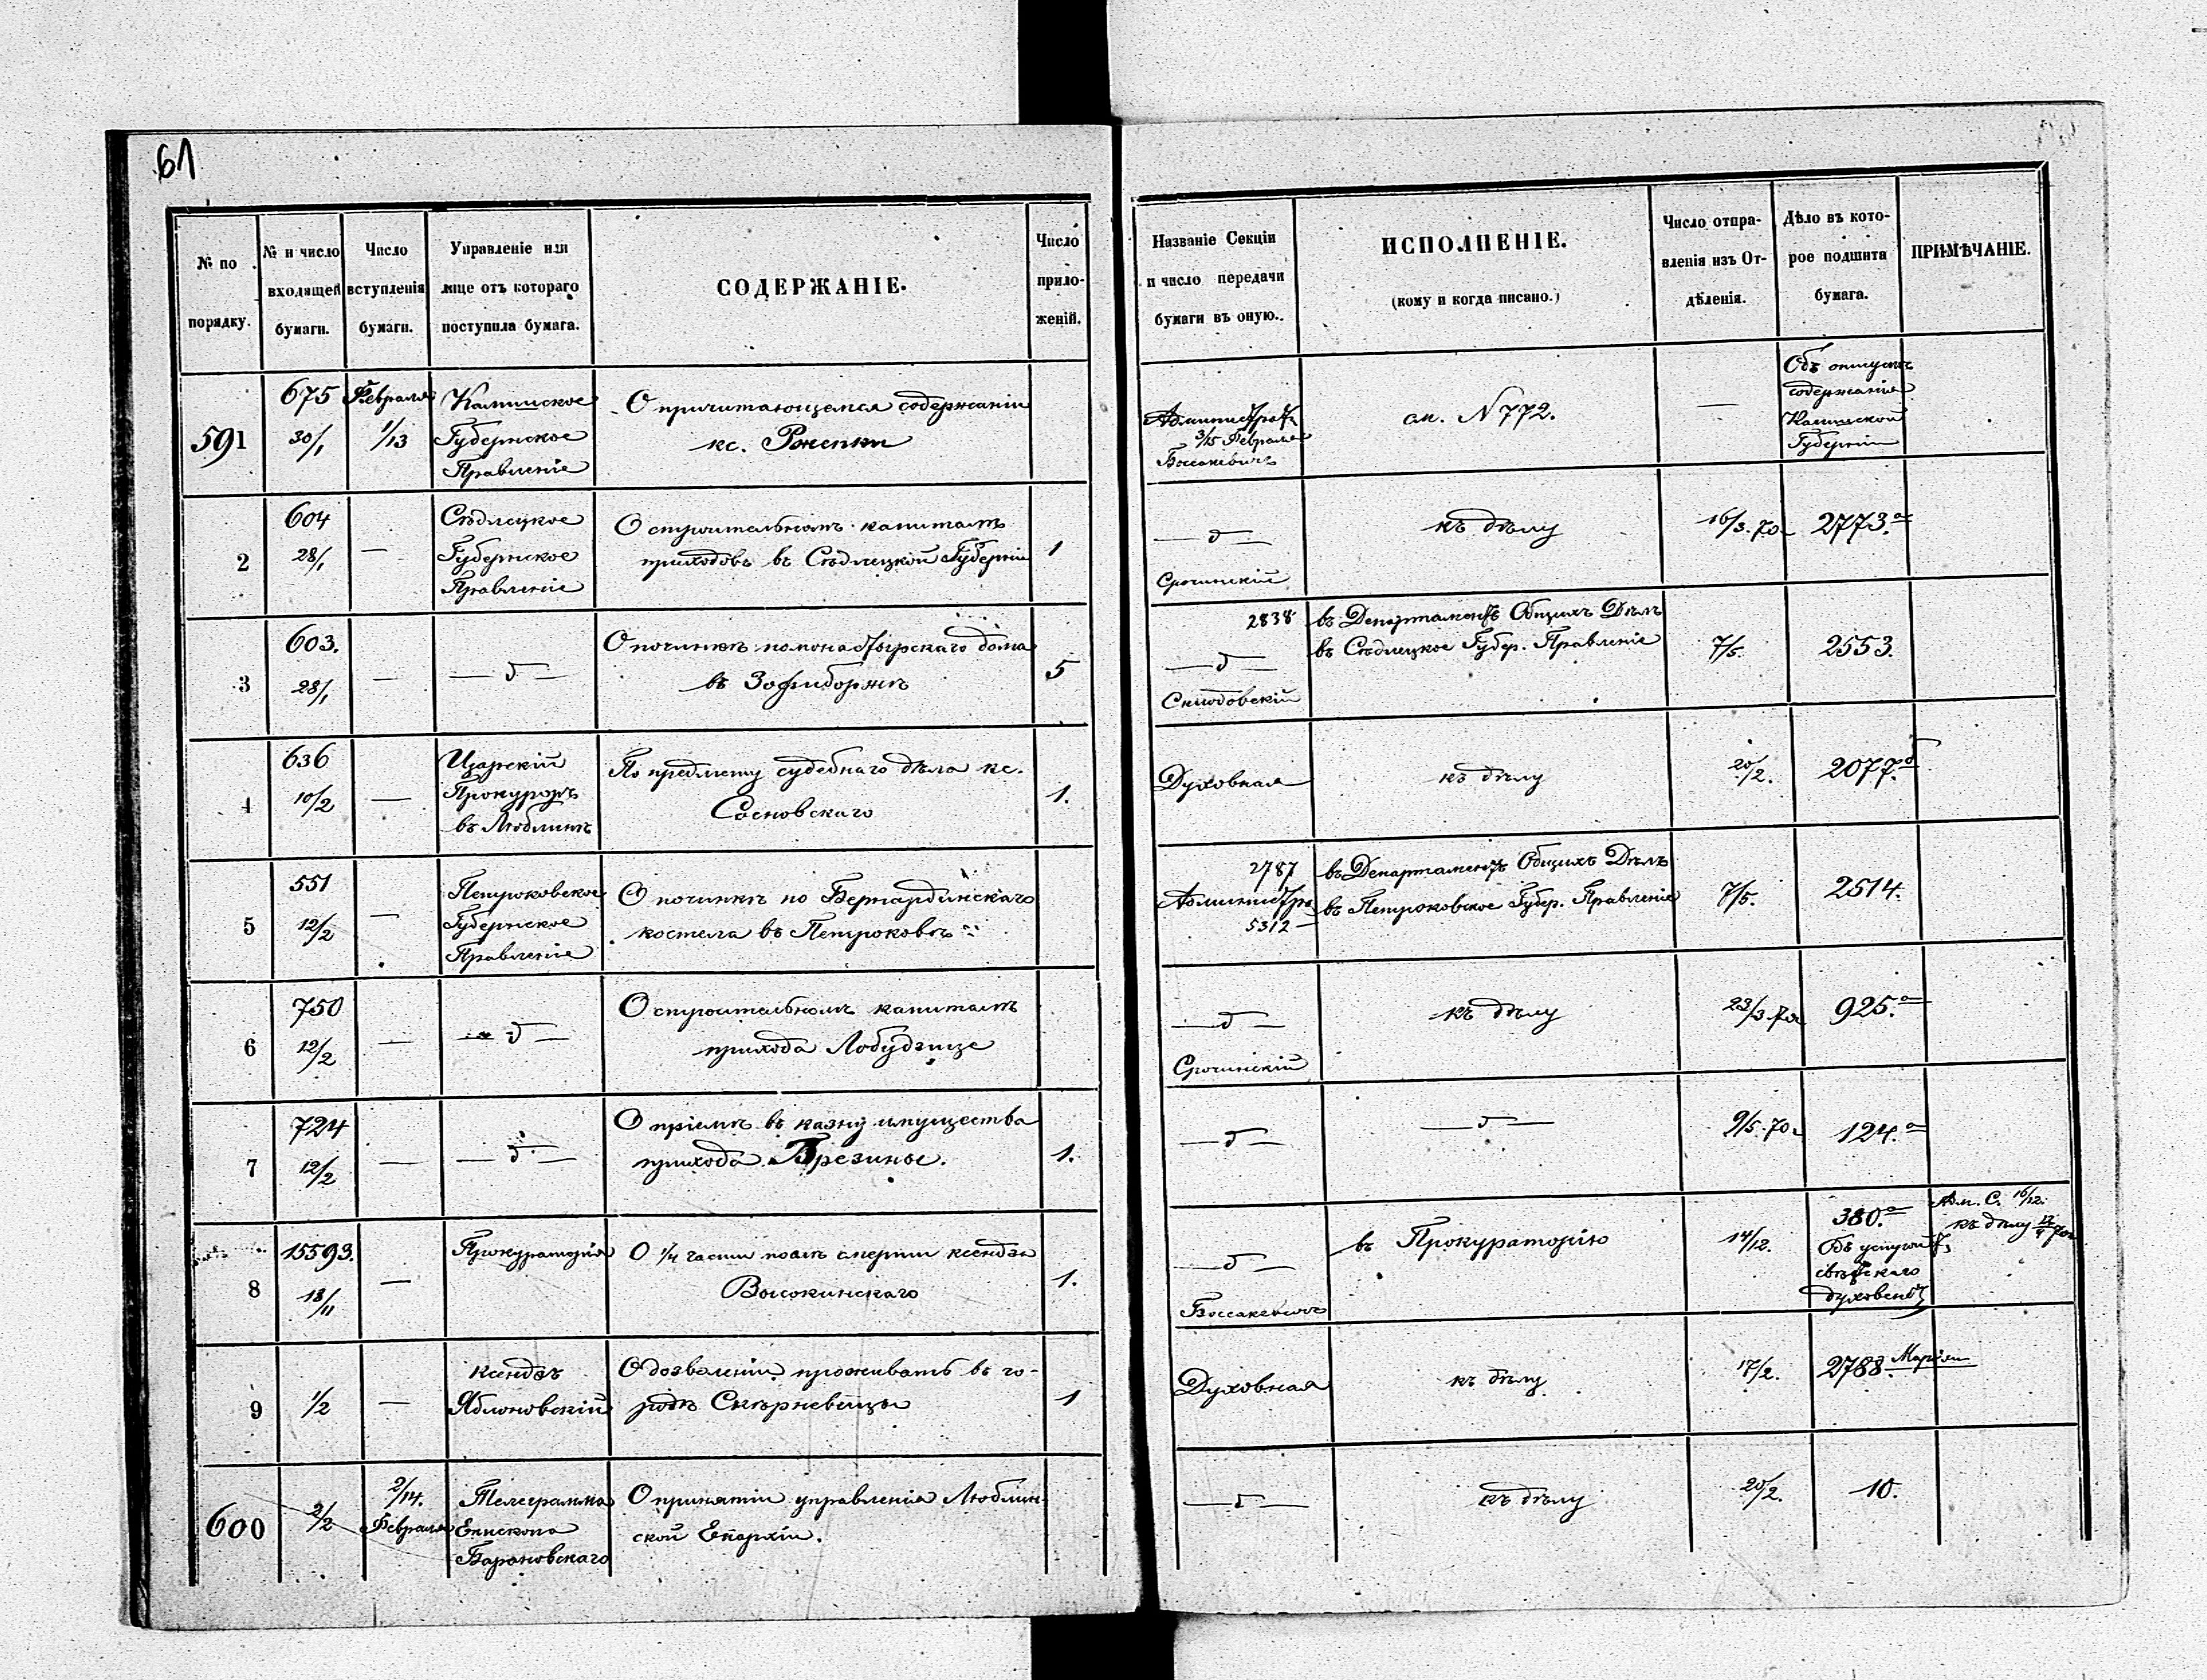 61
№ по порядку.
№ и число входящей бумаги.
Число вступленія бумаги.
Управленіе или лице отъ котораго поступила бумага.
СОДЕРЖАНІЕ.
Число приложеній.
Названіе Секціи и число передачи бумаги въ оную.
ИСПОЛНЕНІЕ.
(кому и когда писано.)
Число отправленія изъ Отдѣленія.
Дѣло въ которое подшита бумага.
ПРИМѢЧАНІЕ.
591
675
30/1
Февраля
1/13
Калишское
Губернское
Правленіе
О причитающемся содержаніи
кс. Ржепки
Администрат
3/15 Февраля
см. N 772.
—
Объ отпускѣ
содержанія
Калишской
Губерніи
2
604
28/1
—
Сѣдлецкое
Губернское
Правленіе
О строительномъ капиталѣ
приходовъ въ Сѣдлецкой Губерніи
1
— д —
Срочинскій
къ дѣлу
16/3. 70
2773.а
3
603.
28/1
—
— д —
О починкѣ помонастырскаго дома
въ Зофиборжѣ
5
2838
— д —
Склодовскій
въ Департаментъ Общихъ Дѣлъ
въ Сѣдлецкое Губер. Правленіе
7/5.
2553.
4
636
10/2
—
Царскій
Прокуроръ
въ Люблинѣ
По предмету судебнаго дѣла кс.
Сосновскаго
1.
Духовная
къ дѣлу
20/2.
2077.
5
551
12/2
—
Петроковское
Губернское
Правленіе
О починкѣ по Бернардинскаго
костела въ Петроковѣ
2787
Администра
5312
въ Департаментъ Общихъ Дѣлъ
въ Петроковское Губер. Правленіе
7/5.
2514.
6
750
12/2
—
— д —
О строительномъ капиталѣ
прихода Лобудзице
— д —
Срочинскій
къ дѣлу
23/3 70
925.а
7
724
12/2
—
— д —
О пріемѣ въ казну имущества
прихода Брезины.
1.
— д —
— д —
9/5. 70
124.а
8
15593.
18/11
—
Прокураторія
О 1/4 части послѣ смерти ксендза
Высокинскаго
1.
— д —
Боссакевичъ
въ Прокураторію
14/12.
380.а
Объ
свѣтскаго
духовенст
Адм. С. 16/12.
къ дѣлу
9
1/2
—
ксендзъ
Яблоновскій
О дозволеніи проживать въ го-
родѣ Скѣрневицы
1
Духовная
къ дѣлу
17/2.
2788. Маріян
600
2/2
2/14.
Февраля
Телеграмма
Епископа
Барановскаго
О принятіи управленія Люблин-
ской Епархіи.
— д —
къ дѣлу
20/2.
10.